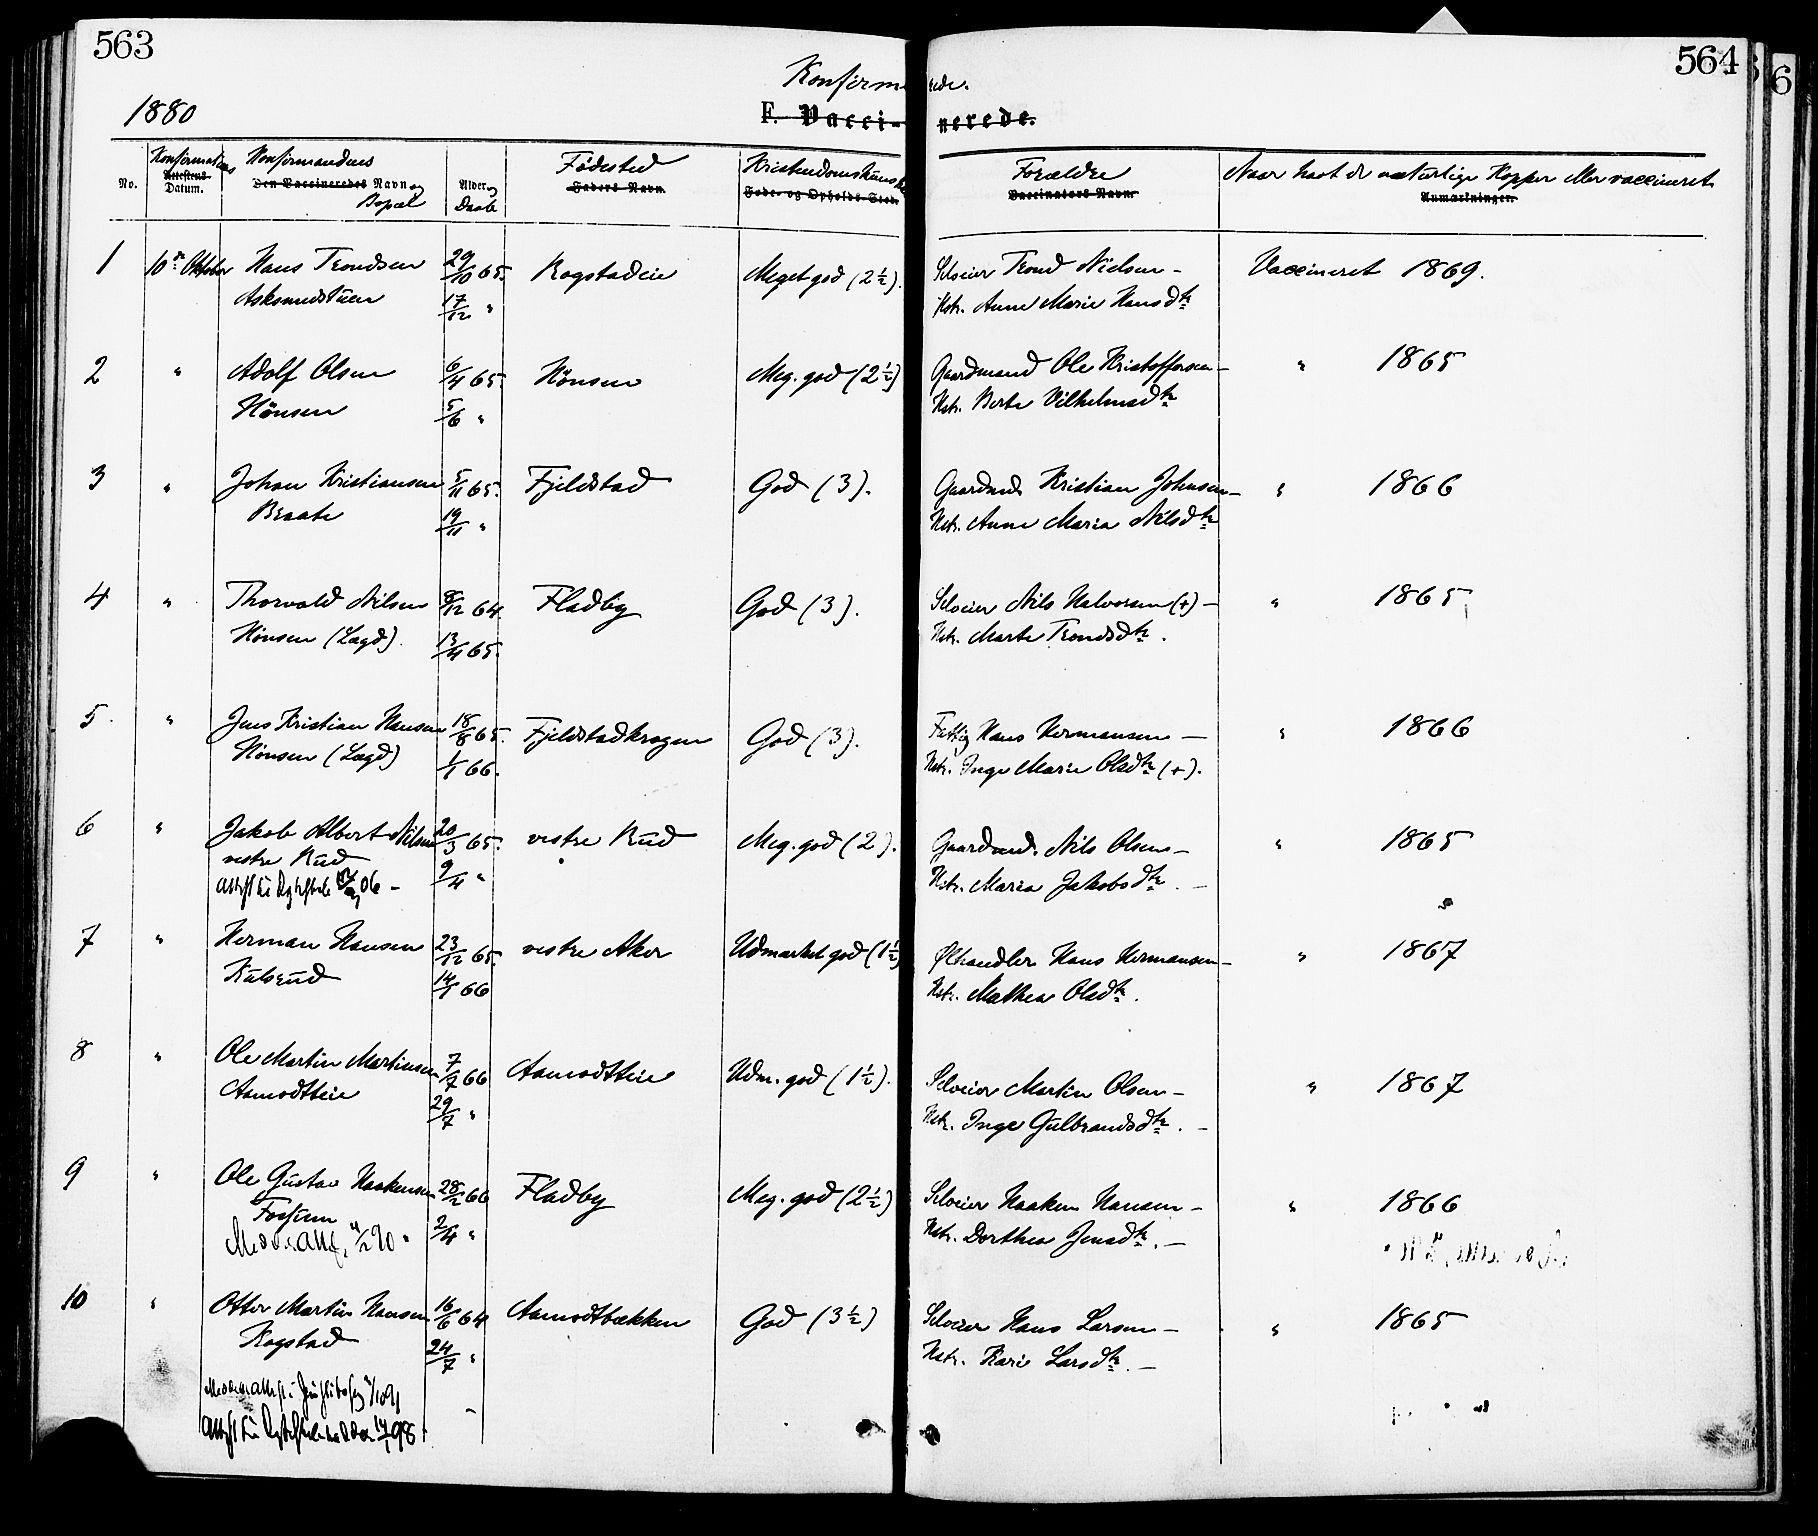 563
564
6
Konfirmerede.
1880
F. Vaccinerede.
No.
Konfirmations
Attestens
Datum.
Konfirmandens
Den Vaccineredes Navn og
Bopæl
Alder og
Daab
Fødested
Faders Navn.
Kristendomskundskab
Føde- og Opholds-Sted.
Forældre
Vaccinators Navn.
Naar havt de naturlige Kopper eller vaccineret
Anmærkninger.
1 10de Oktober Hans Trondsen 29/10 65. Rogstadeie Meget god (2½). Selveier Trond Nielsen – Vaccineret 1869.
17/12 " Hstr. Anne Marie Hansdtr
2 " Adolf Olsen 6/4 65. Hönsen Meg. god (2½) Gaardmand Ole Kristoffersen – " 1865
Hönsen 5/6 " Hstr. Berte Vilhelmsdtr
3 " Johan Kristiansen 5/11 65. Fjeldstad God (3). Gaardmd. Kristian Johnsen – " 1866
Braate 19/11 " Hstr. Anne Maria Nilsdtr
4 " Thorvald Nilsen 8/12 64. Fladby God (3). Selveier Nils Halvorsen (+) – " 1865
Hönsen (Lægd). 13/4 65. Hstr. Marte Trondsdtr.
5. " Jens Kristian Hansen 18/8 65. Fjeldstadkrogen God (3). Fattig Hans Hermansen – " 1866
Hönsen (Lægd) 1/1 66. Hstr. Inge Marie Olsdtr (+).
6 " Jakob Albert Nilsen 20/3 65. vestre Rud Meg. god (2). Gaardmd. Nils Olsen – " 1865
vestre Rud 9/4 " Hstr. Maria Jakobsdtr. –
06 –
7 " Herman Hansen 23/12 65. vestre Aker Udmærket god (1½) Ølhandler Hans Hermansen – " 1867
Kulsrud 14/1 66 Hstr. Mathea Olsdtr.
8 " Ole Martin Martinsen 7/7 66 Aamodteie Udm. god (1½). Selveier Martin Olsen – " 1867
Aamodteie 29/7 " Hstr. Inge Gulbrandsdtr. –
9 " Ole Gustav Haakensen 28/2 66 Fladby Meg. god (2½) Selveier Haaken Hansen – " 1866
Fossum 2/4 " Hstr. Dorthea Jensdtr. –
10 " Otter Martin Hansen 16/6 64 Aamodtbækken God (3½) Selveier Hans Larsen – " 1865
Rogstad 24/7 " Hstr. Kari Larsdtr. –